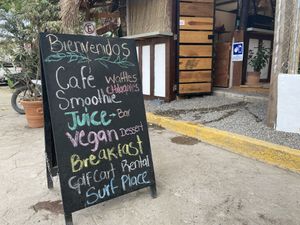 Bienvenidos
Café Waffles
Chilaquiles
Smoothie
Juice-Bar
Vegan Dessert
Breakfast
Golf Cart Rental
Surf Place